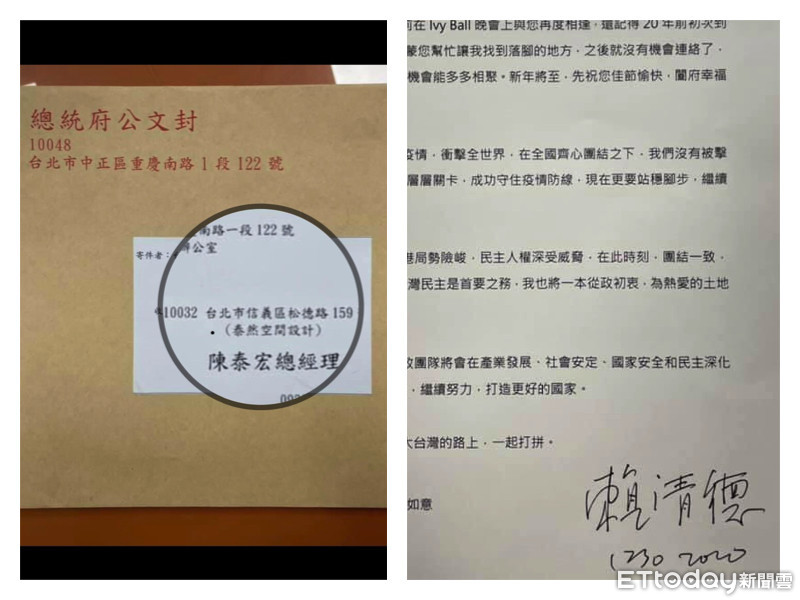 總統府公文封
10048
台北市中正區重慶南路1段122號
慶南路一段122號
辦公室
寄件者：
10032 台北市信義區松德路159
（泰然空間設計）
陳泰宏總經理
前在 Ivy Ball 晚會上與您再度相逢，還記得 20 年前初次到
蒙您幫忙讓我找到落腳的地方，之後就沒有機會連絡了，
機會能多多相聚。新年將至，先祝您佳節愉快，闔府幸福
疫情，衝擊全世界，在全國齊心團結之下，我們沒有被擊
層層關卡，成功守住疫情防線，現在更要站穩腳步，繼續
港局勢險峻，民主人權深受威脅，在此時刻，團結一致，
灣民主是首要之務，我也將一本從政初衷，為熱愛的土地
政團隊將會在產業發展、社會安定、國家安全和民主深化
，繼續努力，打造更好的國家。
大台灣的路上，一起打拼。
如意
賴清德
1230 2020
ETtoday新聞雲